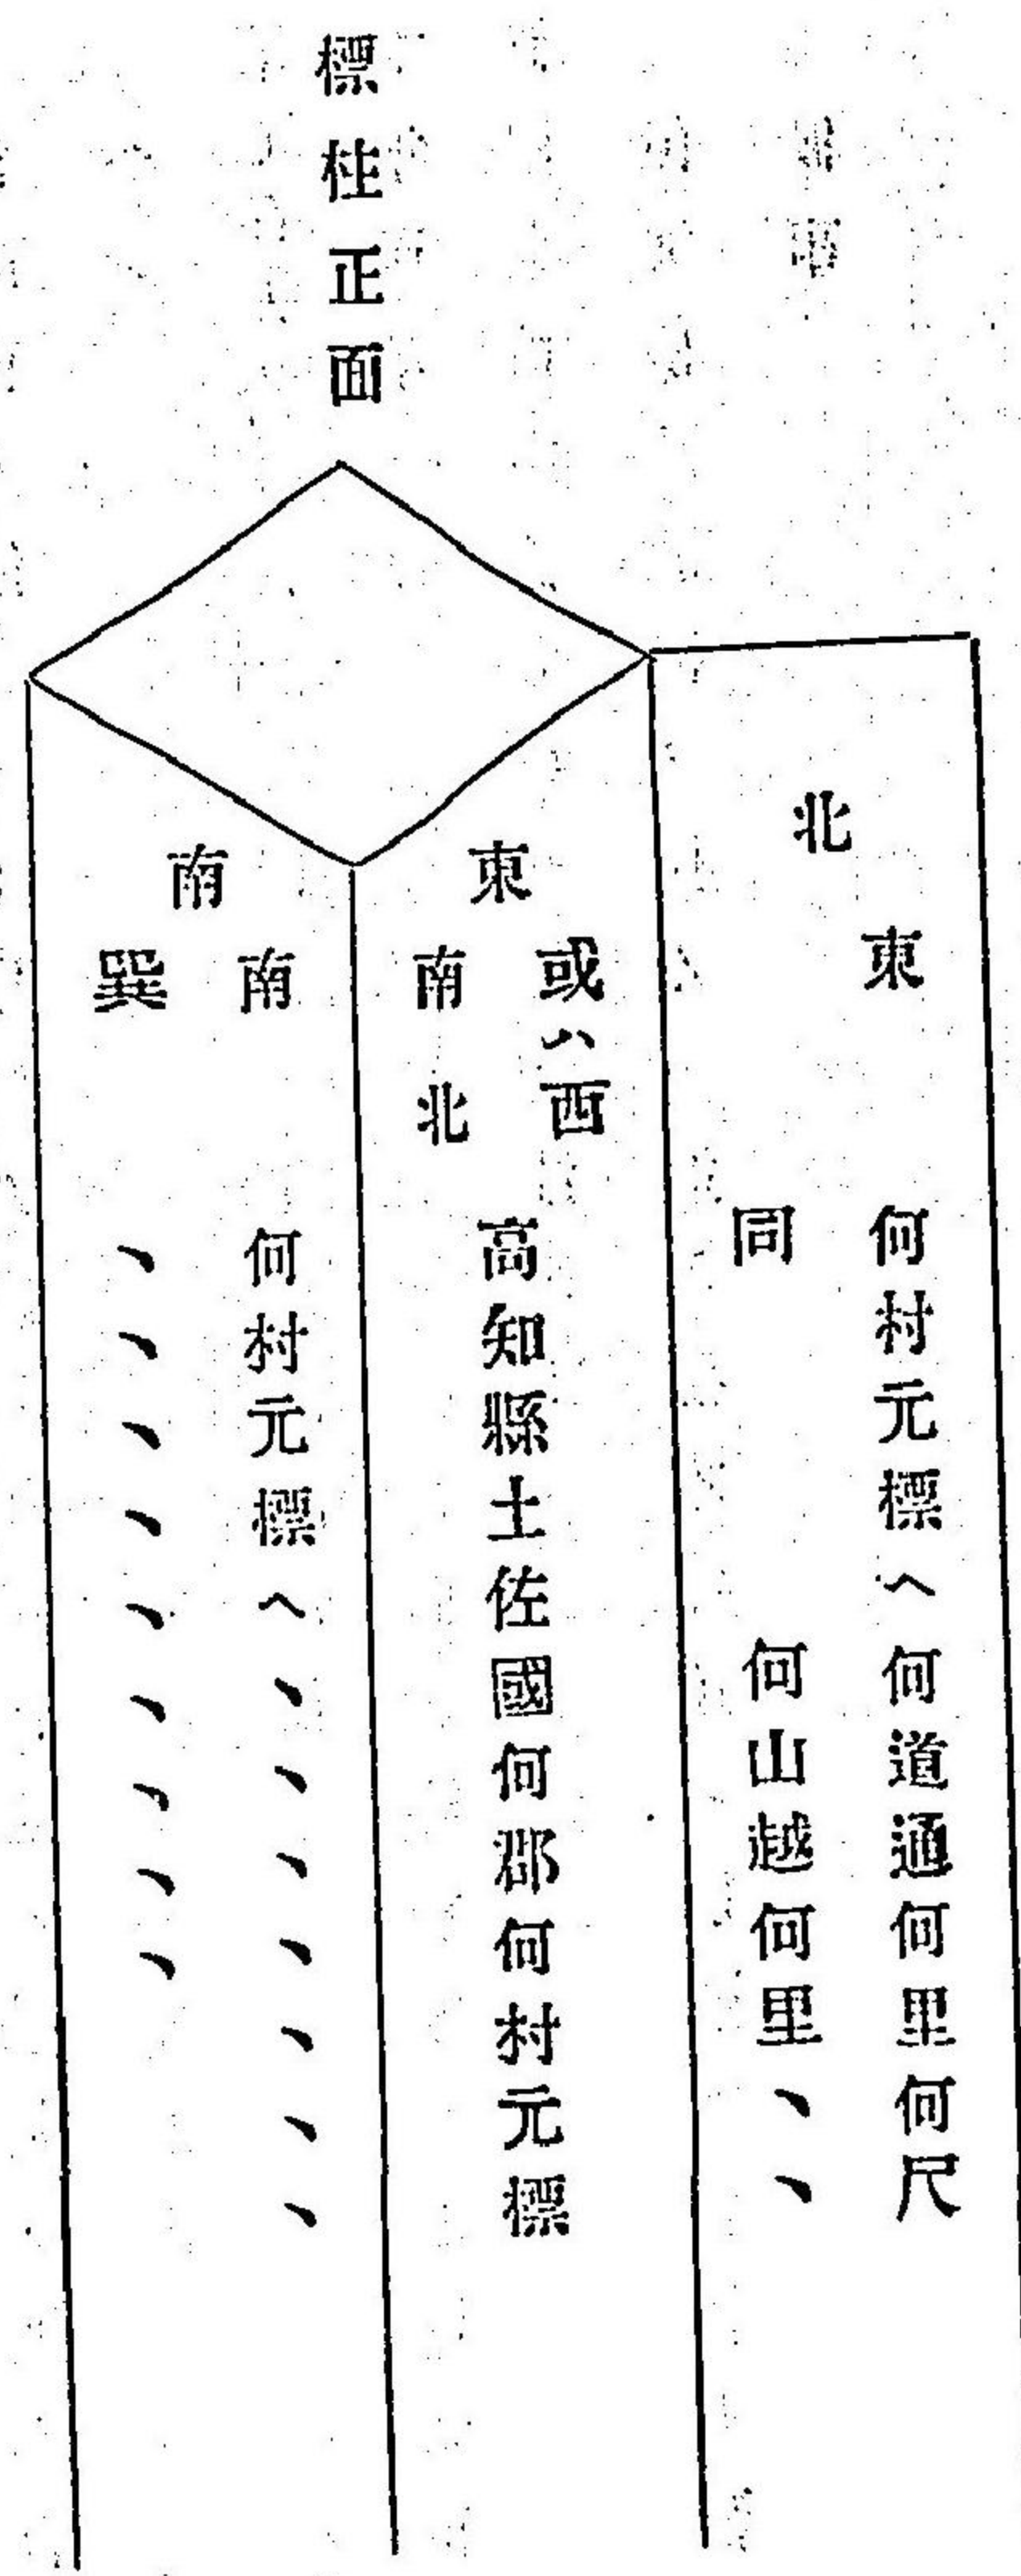 標柱正面
北
東 何村元標ヘ何道通何里何尺
同 何山越何里、、
東
或ハ西
南北
高知縣土佐國何郡何村元標
南
南 何村元標ヘ、、、、、、、
巽 、、、、、、、、、